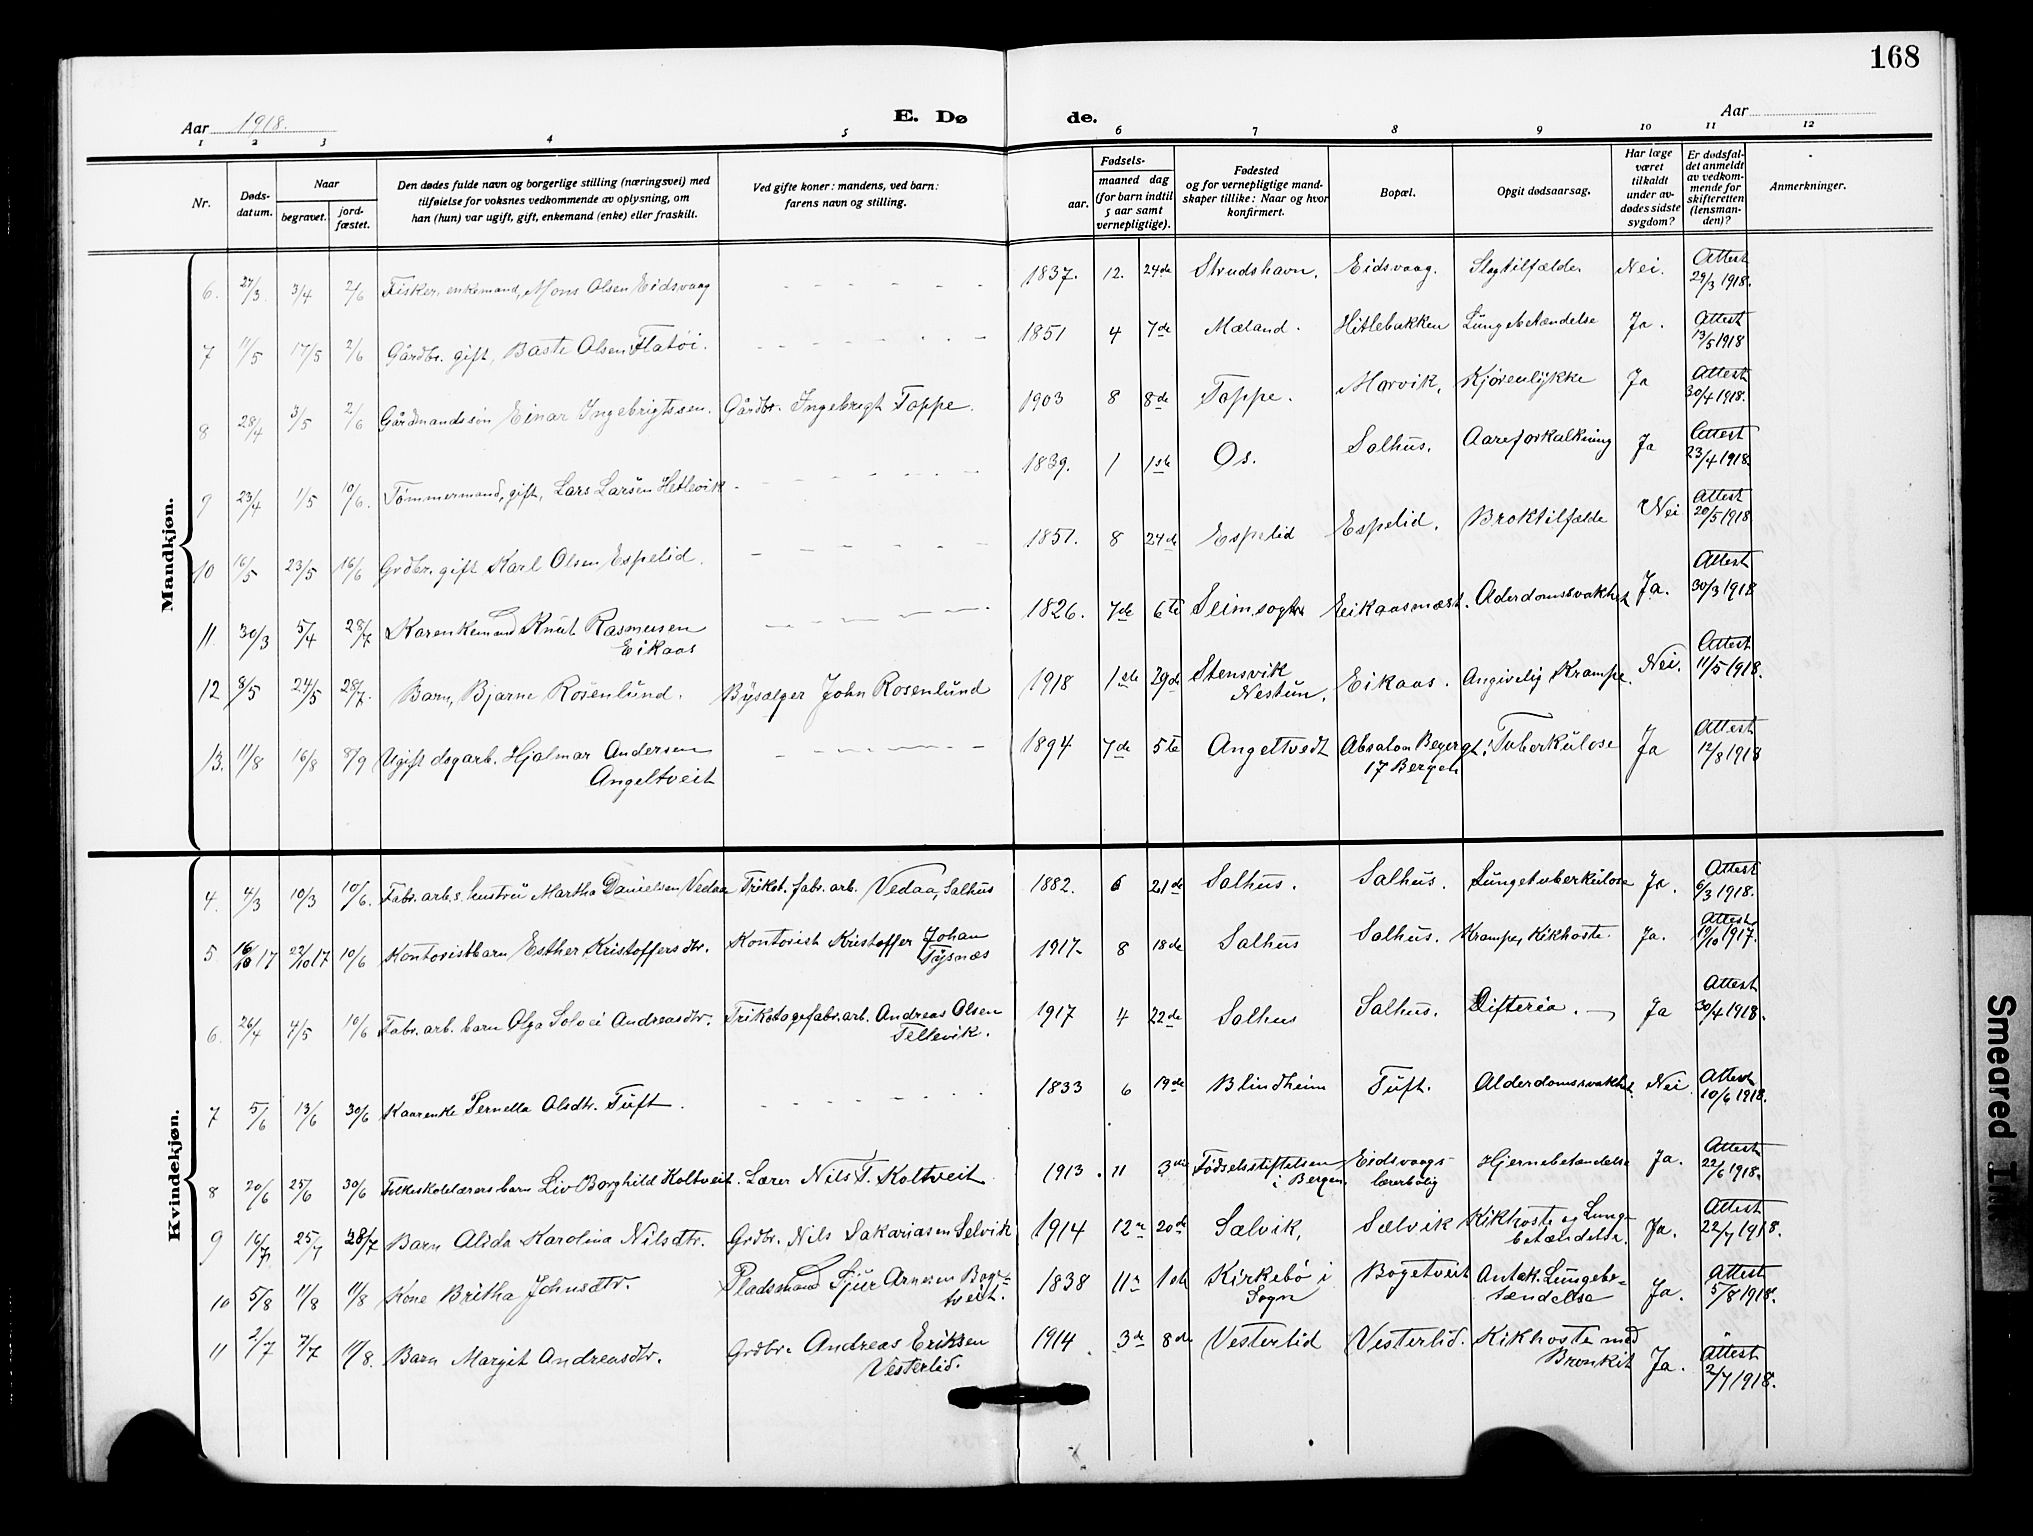 168
Aar 1918.
E. Dø de.
Aar
1 2 3 4 5 6 7 8 9 10 11 12
Nr.
Døds-
datum.
Naar
begravet.
jord-
fæstet.
Den dødes fulde navn og borgerlige stilling (næringsvei) med
tilføielse for voksnes vedkommende av oplysning, om
han (hun) var ugift, gift, enkemand (enke) eller fraskilt.
Ved gifte koner: mandens, ved barn:
farens navn og stilling.
Fødsels-
aar.
maaned dag
(for barn indtil
5 aar samt
vernepligtige).
Fødested
og for vernepligtige mand-
skaper tillike: Naar og hvor
konfirmert.
Bopæl.
Opgit dødsaarsag.
Har læge
været
tilkaldt
under av-
dødes sidste
sygdom?
Er dødsfal-
det anmeldt
av vedkom-
mende for
skifteretten
(lensman-
den)?
Anmerkninger.
Mandkjøn.
6. 27/3 3/4 2/6 Fisker, enkemand, Mons Olsen Eidsvaag - - - - - - 1837. 12. 24de Strudshavn. Eidsvaag. Slagtilfælde Nei. Attest
29/3 1918.
7 11/5 17/5 2/6 Gårdbr. gift, Baste Olsen Flatøi. - - - - - - 1851 4 7de Mæland. Hitlebakken Lungebetændelse Ja. Attest
13/5 1918
8 28/4 3/5 2/6 Gårdmandssøn Einar Ingebrigtssen. Gårdbr. Ingebrigt Toppe. 1903 8 8de Toppe. Morvik. Kjørenlykke Ja Attest
30/4 1918.
9 23/4 1/5 10/6. Tømmermand, gift, Lars Larsen Hetlevik - - - - - - 1839. 1 1ste Os. Salhus. Aareforkalkning Ja Attest
23/4 1918.
10 16/5 23/5 16/6 Grdbr. gift Karl Olsen Espelid. - - - - - - 1851. 8 24de Espelid Espelid. Broktilfælde Nei Attest
20/5 1918
11 30/3 5/4 28/7 Karenkemand Knut Rasmusen
Eikaas - - - - - - 1826. 7de 6te Seimsogn Eikaasmært. Alderdomssvakhet Ja. Attest
30/3 1918
12 8/5 24/5 28/7. Barn, Bjarne Rosenlund. Bysælger John Rosenlund 1918 1ste 29de Stensvik
Nestun. Eikaas. Angivelig Krampe. Nei. Attest
11/5 1918.
13. 11/8 16/8 8/9 Ugift dagarb. Hjalmar Andersen
Angeltveit - - - - - - 1894 7de 5te Angeltvedt Absalon Beyergt.
17 Bergen Tuberkulose Ja Attest
12/8 1918
Kvindekjøn.
4. 4/3 10/3 10/6. Fabr. arb.s. hustrü Martha Danielsen Vedaa Trikot. fabr. arb. Vedaa, Salhus 1882. 6 21de Salhus. Salhus. Lungetuberkulose Ja. Attest
6/3 1918.
5 16/10 17 22/10 17 10/6 Kontoristbarn Esther Kristoffersdtr. Kontorist Kristoffer Johan
Tysnæs 1917 8 18de Salhus Salhus. Krampe, Kikhoste. Ja. Attest
19/10 1917.
6. 26/4 4/5 10/6 Fabr. arb. barn Olga Solvei Andreasdtr. Trikotagefabr. arb. Andreas Olsen
Tellevik. 1917 4 22de Salhus Salhus. Difteria. Ja Attest
30/4 1918.
7 5/6 13/6 30/6 Kaarenke Pernella Olsdtr. Tuft. - - - - - - 1833 6 19de Blindheim Tuft. Alderdomssvakhet. Nei Attest
10/6 1918.
8 20/6 25/6 30/6 Folkeskolelærers barn Liv Borghild Koltveit. Lærer Nils T. Koltveit 1913. 11 3die Fødselsstiftelsen
i Bergen Eidsvaags
lærerbolig Hjernebetændelse Ja. Attest
22/6 1918.
9 16/7 25/7 28/7 Barn Alida Karolina Nilsdtr. Grdbr. Nils Sakariasen Selvik 1914 12te 20de Sælvik, Sælvik Kikhoste og Lung-
betændelse. Ja. Attest
22/7 1918.
10 5/8 11/8 11/8 Kone Britha Johnsdtr. Pladsmand Sjur Arnesen Boge-
tveit. 1838 11te 1ste Kirkebø i
Sogn Bogetveit Antak. Lungebe-
tændelse Ja. Attest
5/8 1918.
11 2/7 7/7 11/8. Barn Margit Andreasdtr. Grdbr. Andreas Eriksen
Vesterlid. 1914. 3de 8de Vesterlid Vesterlid. Kikhoste med
Bronkit Ja. Attest
2/7 1918.
Smeared Ink